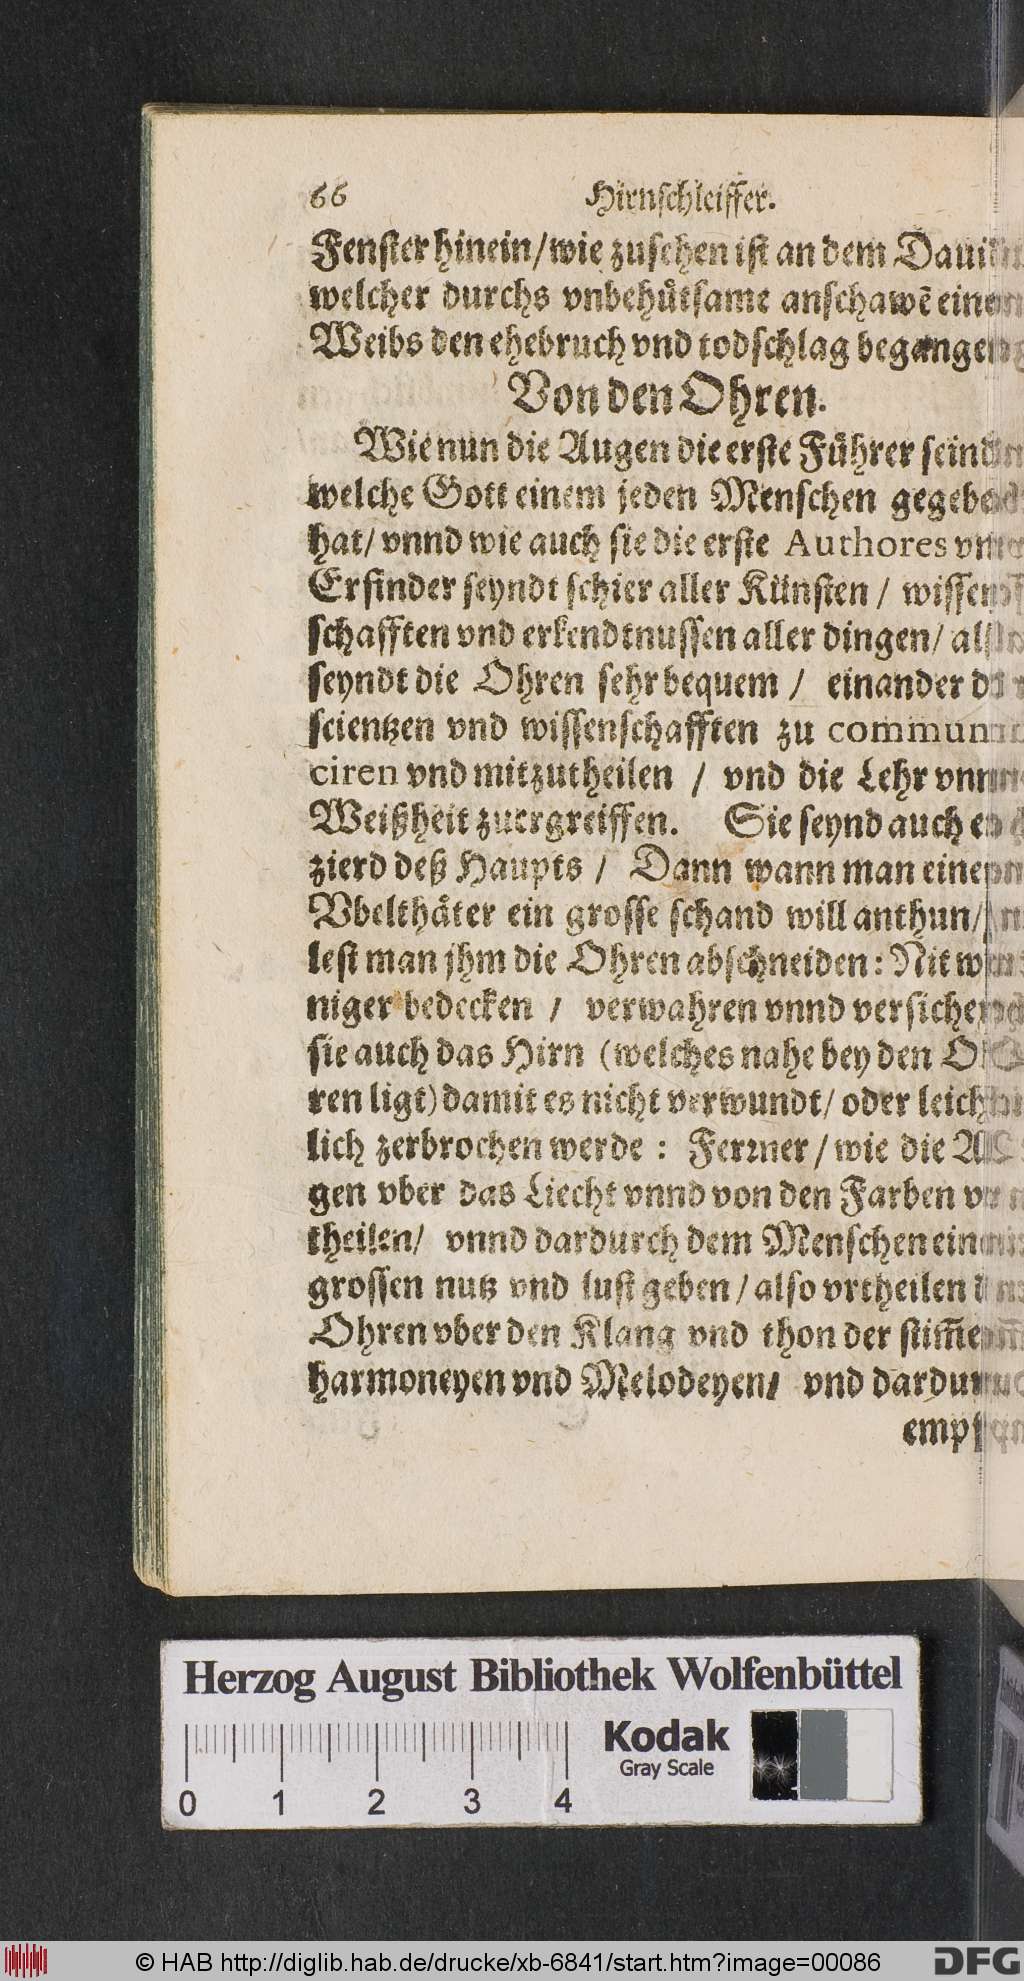 66 Hirnschleiffer.
Fenster hinein/ wie zusehen ist an dem
welcher durchs vnbehuͤtsame anschawē
Weibs den ehebruch vnd todschlag
Von den Ohren.
Wie nun die Augen die erste Fuͤhrer
welche Gott einem jeden Menschen
hat/ vnnd wie auch sie die erste Authores
Erfinder seyndt schier aller Künsten /
schafften vnd erkendtnussen aller dingen/
seyndt die Ohren sehr bequem / einander
scientzen vnd wissenschafften zu
ciren vnd mitzutheilen / vnd die Lehr
Weißheit zuergreiffen. Sie seynd auch
zierd deß Haupts / Dann wann man
Vbelthaͤter ein grosse schand will anthun/
lest man jhm die Ohren abschneiden: Nit
niger bedecken / verwahren vnnd
sie auch das Hirn (welches nahe bey den
ren ligt) damit es nicht verwundt/ oder
lich zerbrochen werde : Ferꝛner / wie die
gen vber das Liecht vnnd von den Farben
theilen/ vnnd dardurch dem Menschen
grossen nutz vnd lust geben / also vrtheilen
Ohren vber den Klang vnd thon der
harmoneyen vnd Melodeyen/ vnd
Herzog August Bibliothek Wolfenbüttel
0 1 2 3 4
Kodak
Gray Scale
© HAB http://diglib.hab.de/drucke/xb-6841/start.htm?image=00086
DFG